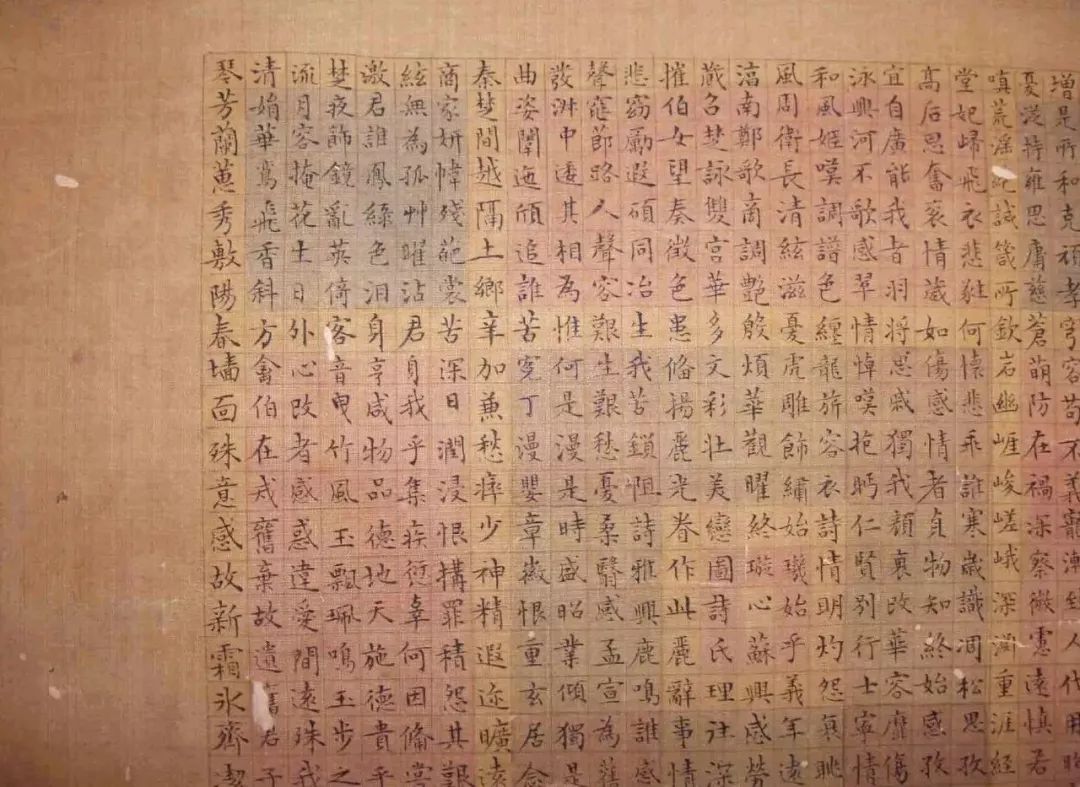 增是所和克頑孝穹容苟不義寵漸至人代用昭
憂漫持雍思庸慈蒼萌防在禍深察微慮遠慎若
嗔荒淫妃誠箴所欽岩幽崖峻嵯峨深淵重涯經
堂妃歸飛衣悲雖何懷悲乖誰寒歲識凋松思孜
髙后思奮衰情歲如傷感情者貞物知終始感孜
宜自廣能我者羽將思戚獨我顏衰改華容靡傷
泳興河不歌感翠情悼嘆抱眄仁賢別行士寧情
和風姬嘆調譜色纏龍旂容衣詩情明灼怨哀眺
風周衛長清絃滋憂虎雕飾繡始璣始乎義年遠
滈南鄭歌商調艷殷煩華觀曜終璇心蘇興感勞
藏召楚詠雙宮華多文彩壯美戀圖詩氏理往深
摧伯女望奏徵色患俻揚麗光眷作此麗辭事情
悲窈勵遐碩同冶生我苦鎖怛詩雅興鹿鳴誰感
聲窕節路人聲容艱生艱愁憂桑翳感孟宣為舊
發淋中逶其相為惟何是漫是時盛昭業傾獨是
曲姿闈迤頎追誰苦寃丁漫嬰章徵恨重玄居念
秦楚間越隔土鄉辛加兼愁瘁少神精遐迩曠遠
商家妍幃殘葩裳苦深日潤浸恨搆罪積怨其艱
絃無為孤艸曜沾君身我乎集疾愆辜何因俻嘗
激君誰鳳綠色泪身亨咸物品德地天施德貴平
楚夜飾鏡亂英倚客音曳竹風玉飄珮鳴玉步之
流月容掩花士日外心改者感惑違愛間遠殊我
清娟華鴛飛香斜方禽伯在戎舊棄故遺舊君子
琴芳蘭蕙秀敷陽春墻面殊意感故新霜冰齊潔